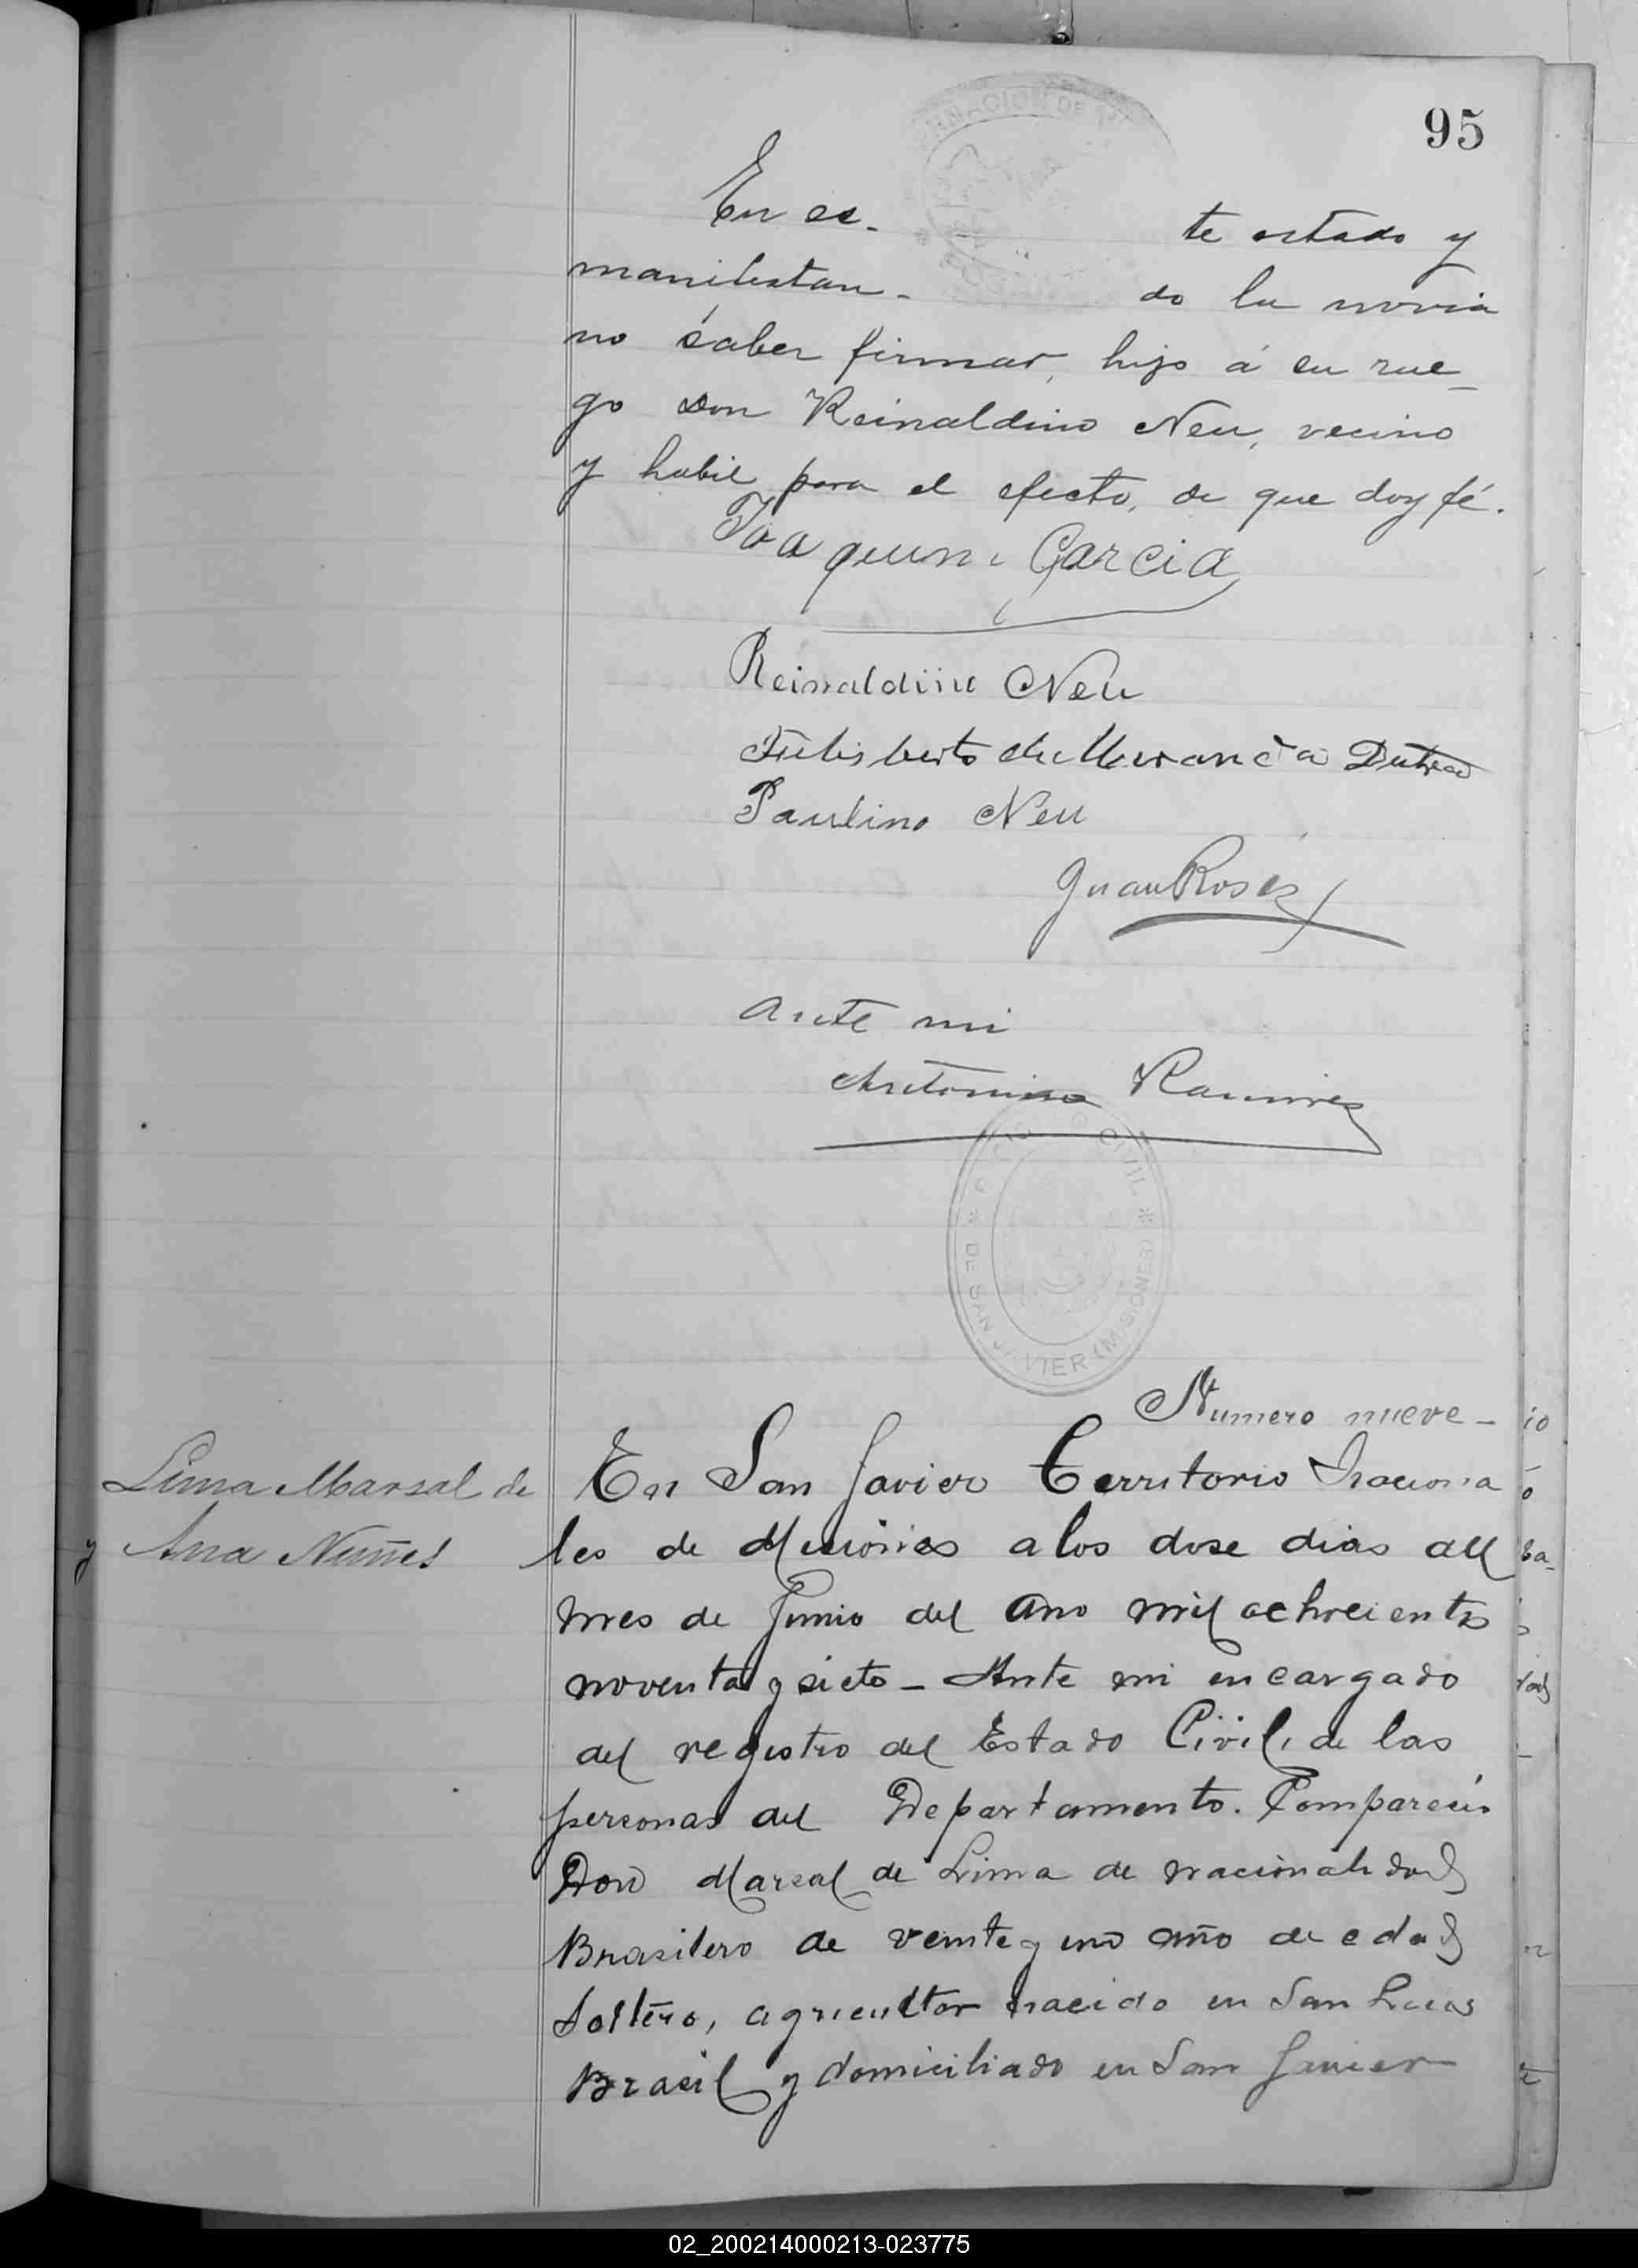 95
En es-te estado y
manifestan-do la novia
no saber firmar, hijo á su rue-
go Don Reinaldino Neu, vecino
y habil para el efecto, de que doy fé.
Joaquin Garcia
Reinaldino Neu
de Miranda Dutra
Paulino Neu
Juan Rosés
Ante mi
Antonino Ramirez
CIVIL
DE SAN JAVIER (MISIONES)
Numero nueve-
Lima Marsal de
y Ana Nuñes
En San Javier Territorio Naciona
les de Misiones a los dose dias del
mes de Junio del Año mil ochocientos
noventa y siete - Ante mi encargado
del registro del Estado Civil, de las
personas del Departamento. Comparecio
Don Marsal de Lima de nacionalidad
Brasilero de veinte y uno año de edad
Soltero, agricultor nacido en San Lucas
Brasil y domiciliado en San Javier
02_200214000213-023775